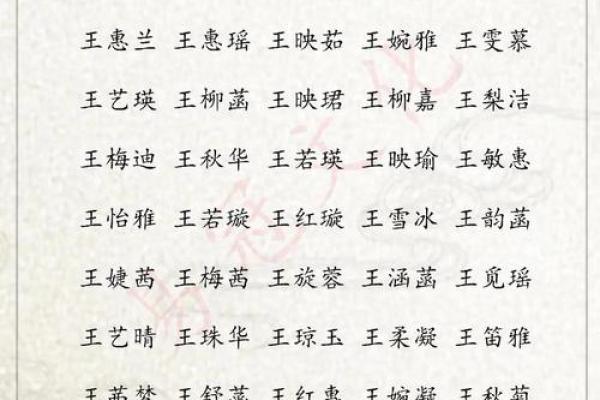 王惠兰 王惠瑶 王映茹 王婉雅 王雯慕
王艺瑛 王柳菡 王映珺 王柳嘉 王梨洁
王梅迪 王秋华 王若瑛 王映瑜 王敏惠
王怡雅 王若璇 王红璇 王雪冰 王韵菡
王婕茜 王梅茜 王旋蓉 王涵菡 王觅瑶
王艺晴 王珠华 王琼玉 王柔凝 王笛雅
王茜梦 王舒菡 王红惠 王婉凝 王秋菊